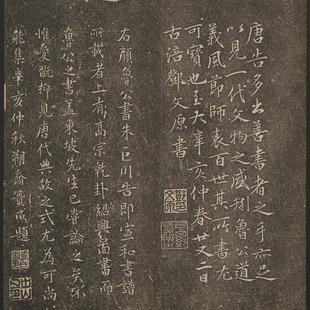 唐告多出善書者之手亦足
以見一代文物之盛矧魯公道
義風節師表百世其所書尤
可寶也至大辛亥仲春廿又二日
古涪鄧文原書
右顏魯公書朱巨川告即宣和書譜
所載者上有高宗乾卦紹興蓋書而
魯公之書蓋東坡先生已嘗論之矣不
惟愛玩抑見唐代典故之式尤為可尚
龍集辛亥仲秋朔喬簣成題